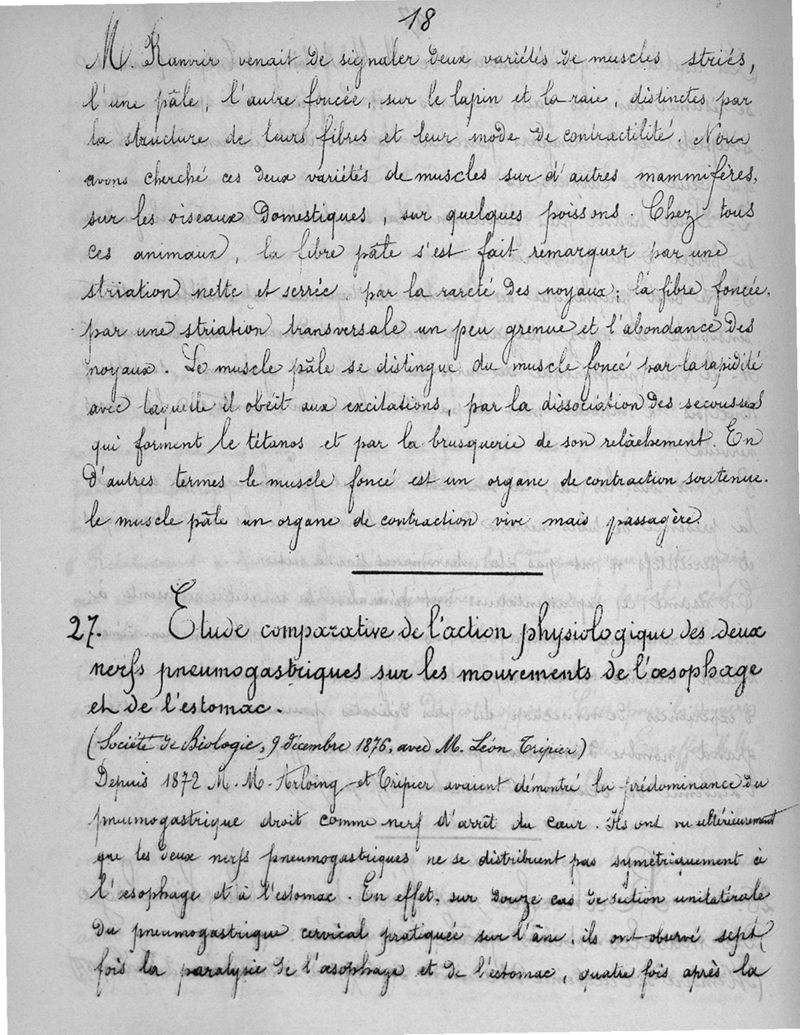 18
M. Ranvier venait de signaler deux variétés de muscles striés,
l'une pâle, l'autre foncée, sur le lapin et la raie, distinctes par
la structure de leurs fibres et leur mode de contractilité. Nous
avons cherché ces deux variétés de muscles sur d'autres mammifères,
sur les oiseaux domestiques, sur quelques poissons. Chez tous
ces animaux, la fibre pâle s'est fait remarquer par une
striation nette et serrée, par la rareté des noyaux; la fibre foncée,
par une striation transversale un peu grenue et l'abondance des
noyaux. Le muscle pâle se distingue du muscle foncé par la rapidité
avec laquelle il obéit aux excitations, par la dissociation des secousses
qui forment le tétanos et par la brusquerie de son relâchement. En
d'autres termes le muscle foncé est un organe de contraction soutenue.
le muscle pâle un organe de contraction vive mais passagère.
27. Etude comparative de l'action physiologique des deux
nerfs pneumogastriques sur les mouvements de l'œsophage
et de l'estomac.
(Société de Biologie, 9 décembre 1876, avec M. Léon Tripier)
Depuis 1872 M. M. Arloing et Tripier avaient démontré la prédominance du
pneumogastrique droit comme nerf d'arrêt du cœur. Ils ont vu ultérieurement
que les deux nerfs pneumogastriques ne se distribuent pas symétriquement à
l'œsophage et à l'estomac. En effet, sur douze cas de section unilatérale
du pneumogastrique cervical pratiquée sur l'âne, ils ont observé sept
fois la paralysie de l'œsophage et de l'estomac, quatre fois après la